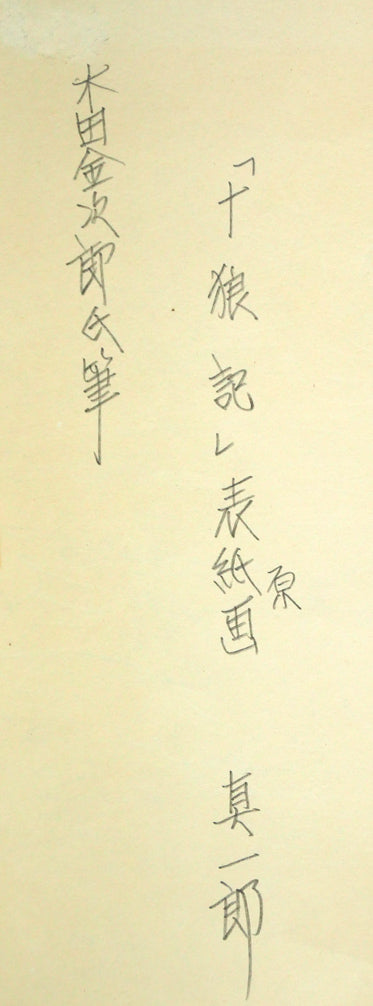 「十狼記」表紙原画 真一郎
木田金次郎氏筆